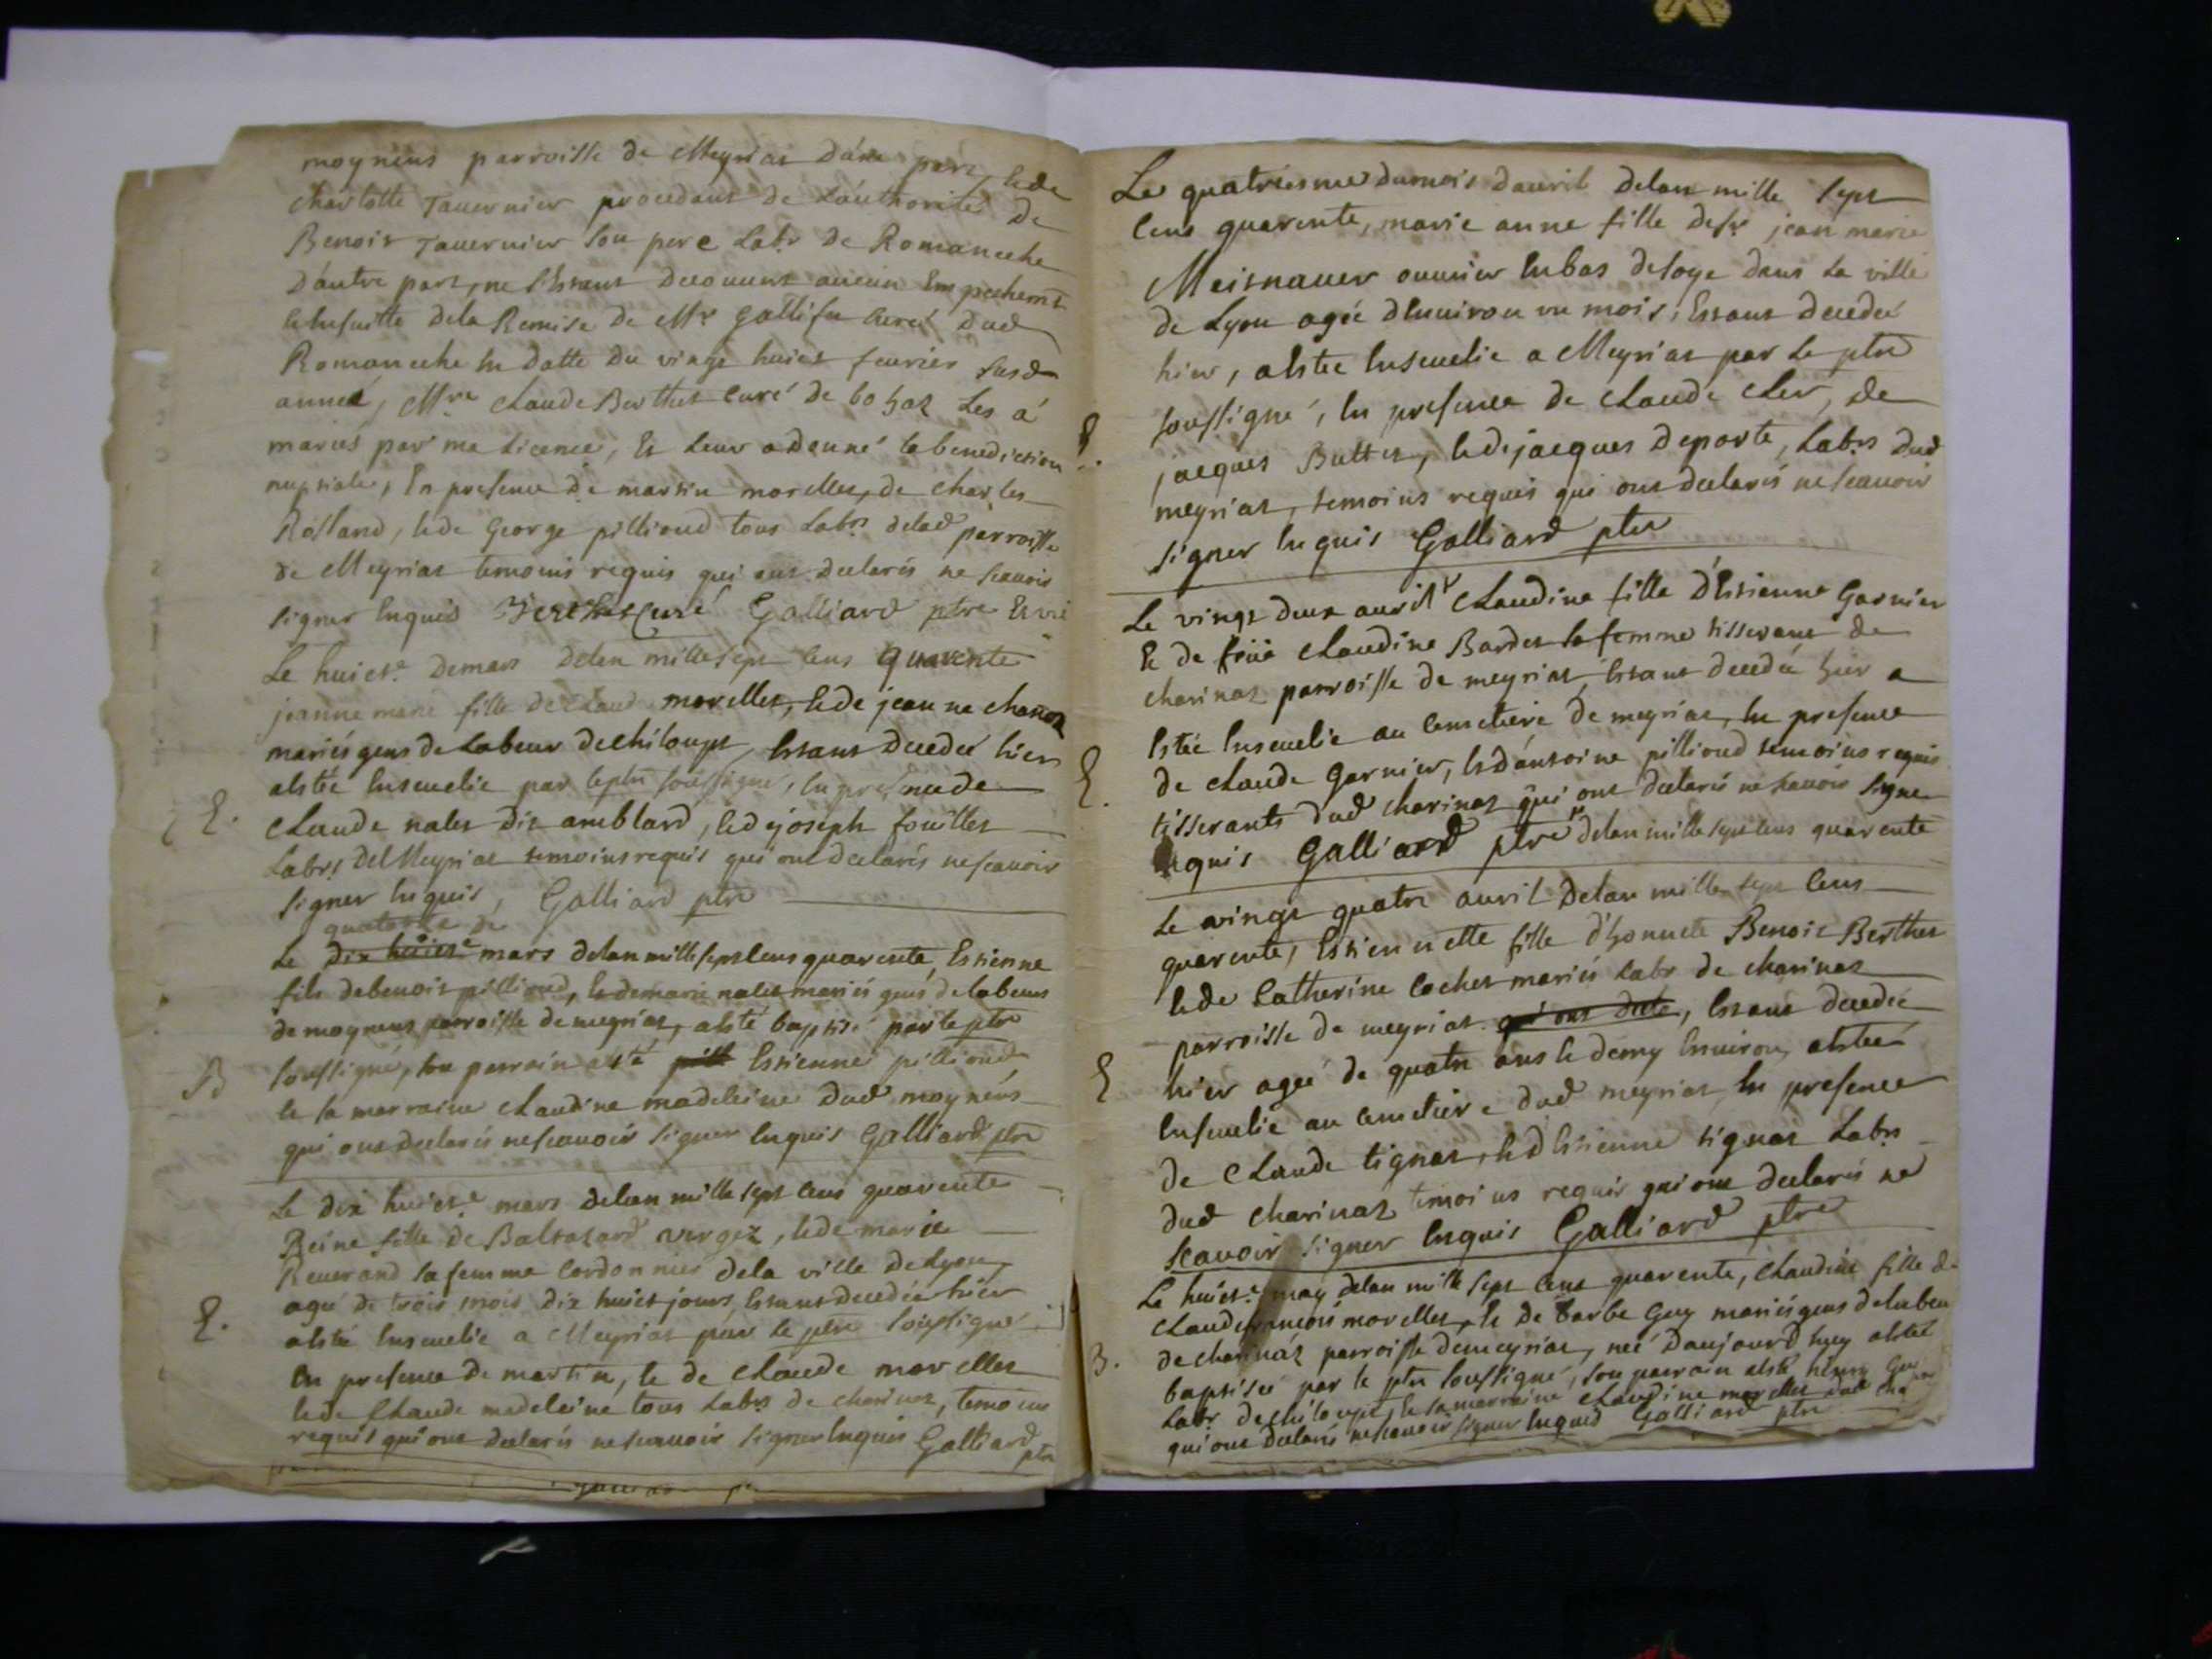 moyneins parroisse de Meyriat d'une part, & de
charlotte Tavernier procedant de l'authorité de
Benoit Tavernier son pere Labr de Romaneche
d'autre part, ne s'estant decouvert aucun Empechemt
Ensuitte de la Remise de Mre Gallifu curé dud
Romaneche En datte du vingt huict fevrier susd
année, Mre Claude Berthet curé de bohaz Les a
mariés par ma Licence, Et Leur a donné la benediction
nuptiale, En presence de martin morellet, de charles
Rolland, & de George pillioud tous Labrs de lad parroisse
de Meyriat temoins requis qui ont declarés ne scavoir
signer Enquis Berthet Curé Galliard ptre
Le huicte de mars de lan mille sept cens quarente
jeanne marie fille de claude morellet, & de jeanne chanoz
mariés gens de Labeur de chiloup, Estant decedée hier
a esté Ensevelie par le ptre soussigné, En presence de
E. Claude nalet dit amblard, & de joseph fouillet
Labrs de Meyriat temoins requis qui ont declarés ne scavoir
signer Enquis, Galliard ptre
quatorze de
Le dix huicte mars de lan mille sept cens quarente, Estienne
fils de benoit pillioud, & de marie nalet mariés gens de Labeur
de moyneins parroisse de meyriat, a esté baptisé par le ptre
B soussigné, son parrain a esté pill Estienne pillioud
& sa marraine claudine madeleine dud moyneins
qui ont declarés ne scavoir signer Enquis Galliard ptre
Le dix huicte mars de lan mille sept cens quarente
Reine fille de Baltazard vergez, & de marie
Reverand sa femme Cordonnier de la ville de Lyon,
E. agée de trois mois dix huict jours, Estant decedée hier
a esté Ensevelie a Meyriat par le ptre soussigné
En presence de martin, & de claude morellet
& de claude madeleine tous Labrs de charinaz, temoins
requis qui ont declarés ne scavoir signer Enquis Galliard ptre
Le quatriesme du mois d'avril de lan mille sept
cens quarente, marie anne fille de sr jean marie
Meisnauer ouvrier En bas de soye dans la ville
de Lyon agée d'Environ un mois, Estant decedée
hier, a estée Ensevelie a Meyriat par le ptre
soussigné, En presence de claude Cler, de
E. jacques Buttet, & de jacques deporte, Labrs dud
meyriat, temoins requis qui ont declarés ne scavoir
signer Enquis Galliard ptre
Le vingt deux avril claudine fille d'Estienne Garnier
& de feüe claudine Bardet sa femme tisserant de
charinaz parroisse de meyriat, Estant decedée hier a
Estée Ensevelie au Cimetiere de meyriat, En presence
E. de claude Garnier, & d'antoine pillioud temoins requis
tisserants dud charinaz qui ont declarés ne scavoir signer
Enquis Galliard ptre de lan mille sept cens quarente
Le vingt quatre avril de lan mille sept cens
quarente, Estiennette fille d'honnete Benoit Berthet
& de Catherine Cochet mariés Labr de charinaz
parroisse de meyriat qui ont decla, Estant decedée
E hier agée de quatre ans & demy Environ, a estée
Ensevelie au Cimetiere dud meyriat, En presence
de Claude tignat, & d'Estienne tignat Labrs
dud charinaz temoins requis qui ont declarés ne
scavoir signer Enquis Galliard ptre
Le huicte may de lan mille sept cens quarente, claudine fille de
claude francois morellet, & de barbe Guy mariés gens de labeur
B. de charinaz parroisse de meyriat, née d'aujourd'huy a esté
baptisée par le ptre soussigné, son parrain a esté henry Guy
Labr de chiloup, & sa marraine claudine morellet dud cha
qui ont declarés ne scavoir signer Enquis Galliard ptre